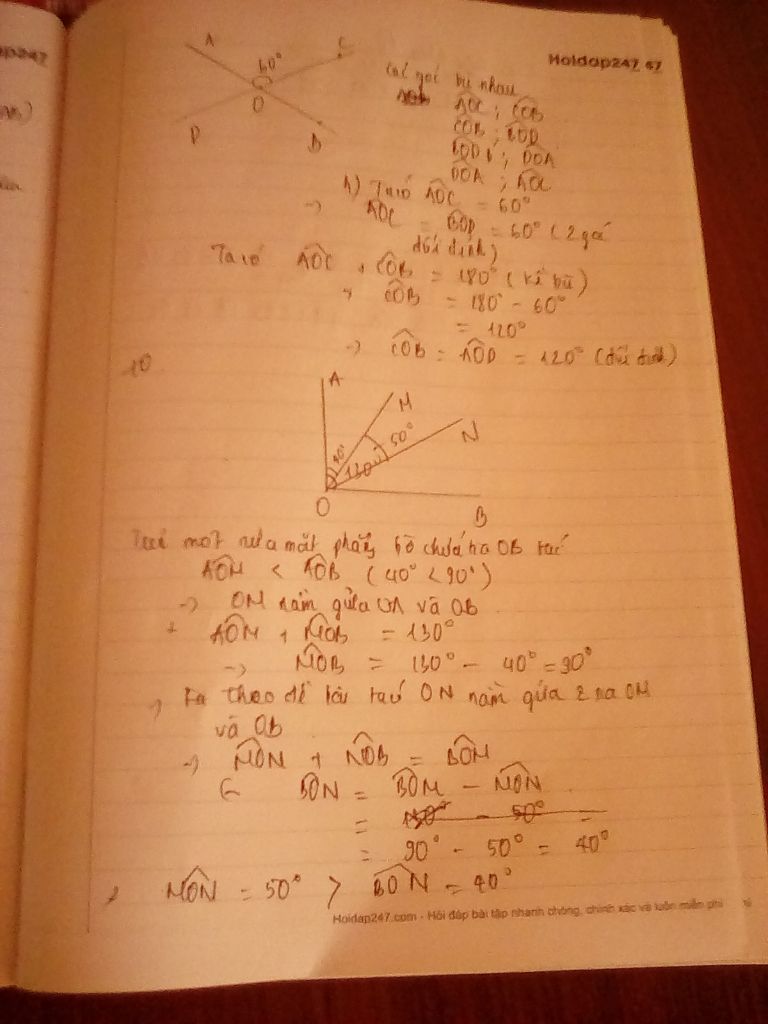 Hoidap247 67
A
60°
C
O
D
B
Các góc bù nhau
AOC ; COB
COB ; BOD
BOD ; DOA
DOA ; AOC
Ta có AOC = 60°
→ AOC = BOD = 60° (2 góc
đối đỉnh)
Ta có AOC + COB = 180° (kề bù)
COB = 180° - 60°
= 120°
→ COB = AOD = 120° (đối đỉnh)
10
A
M
50°
N
40°
130
O
B
một nửa mặt phẳng bờ chứa tia OB
AOM < AOB (40° < 90°)
→ OM nằm giữa OA và OB
AOM + MOB = 130°
→ MOB = 130° - 40° = 90°
theo đề bài ON nằm giữa 2 tia OM
và OB
→ MON + NOB = BOM
BON = BOM - MON
= 90° - 50° = 40°
MON = 50° > BON = 40°
Hoidap247.com - Hỏi đáp bài tập nhanh chóng, chính xác và luôn miễn phí